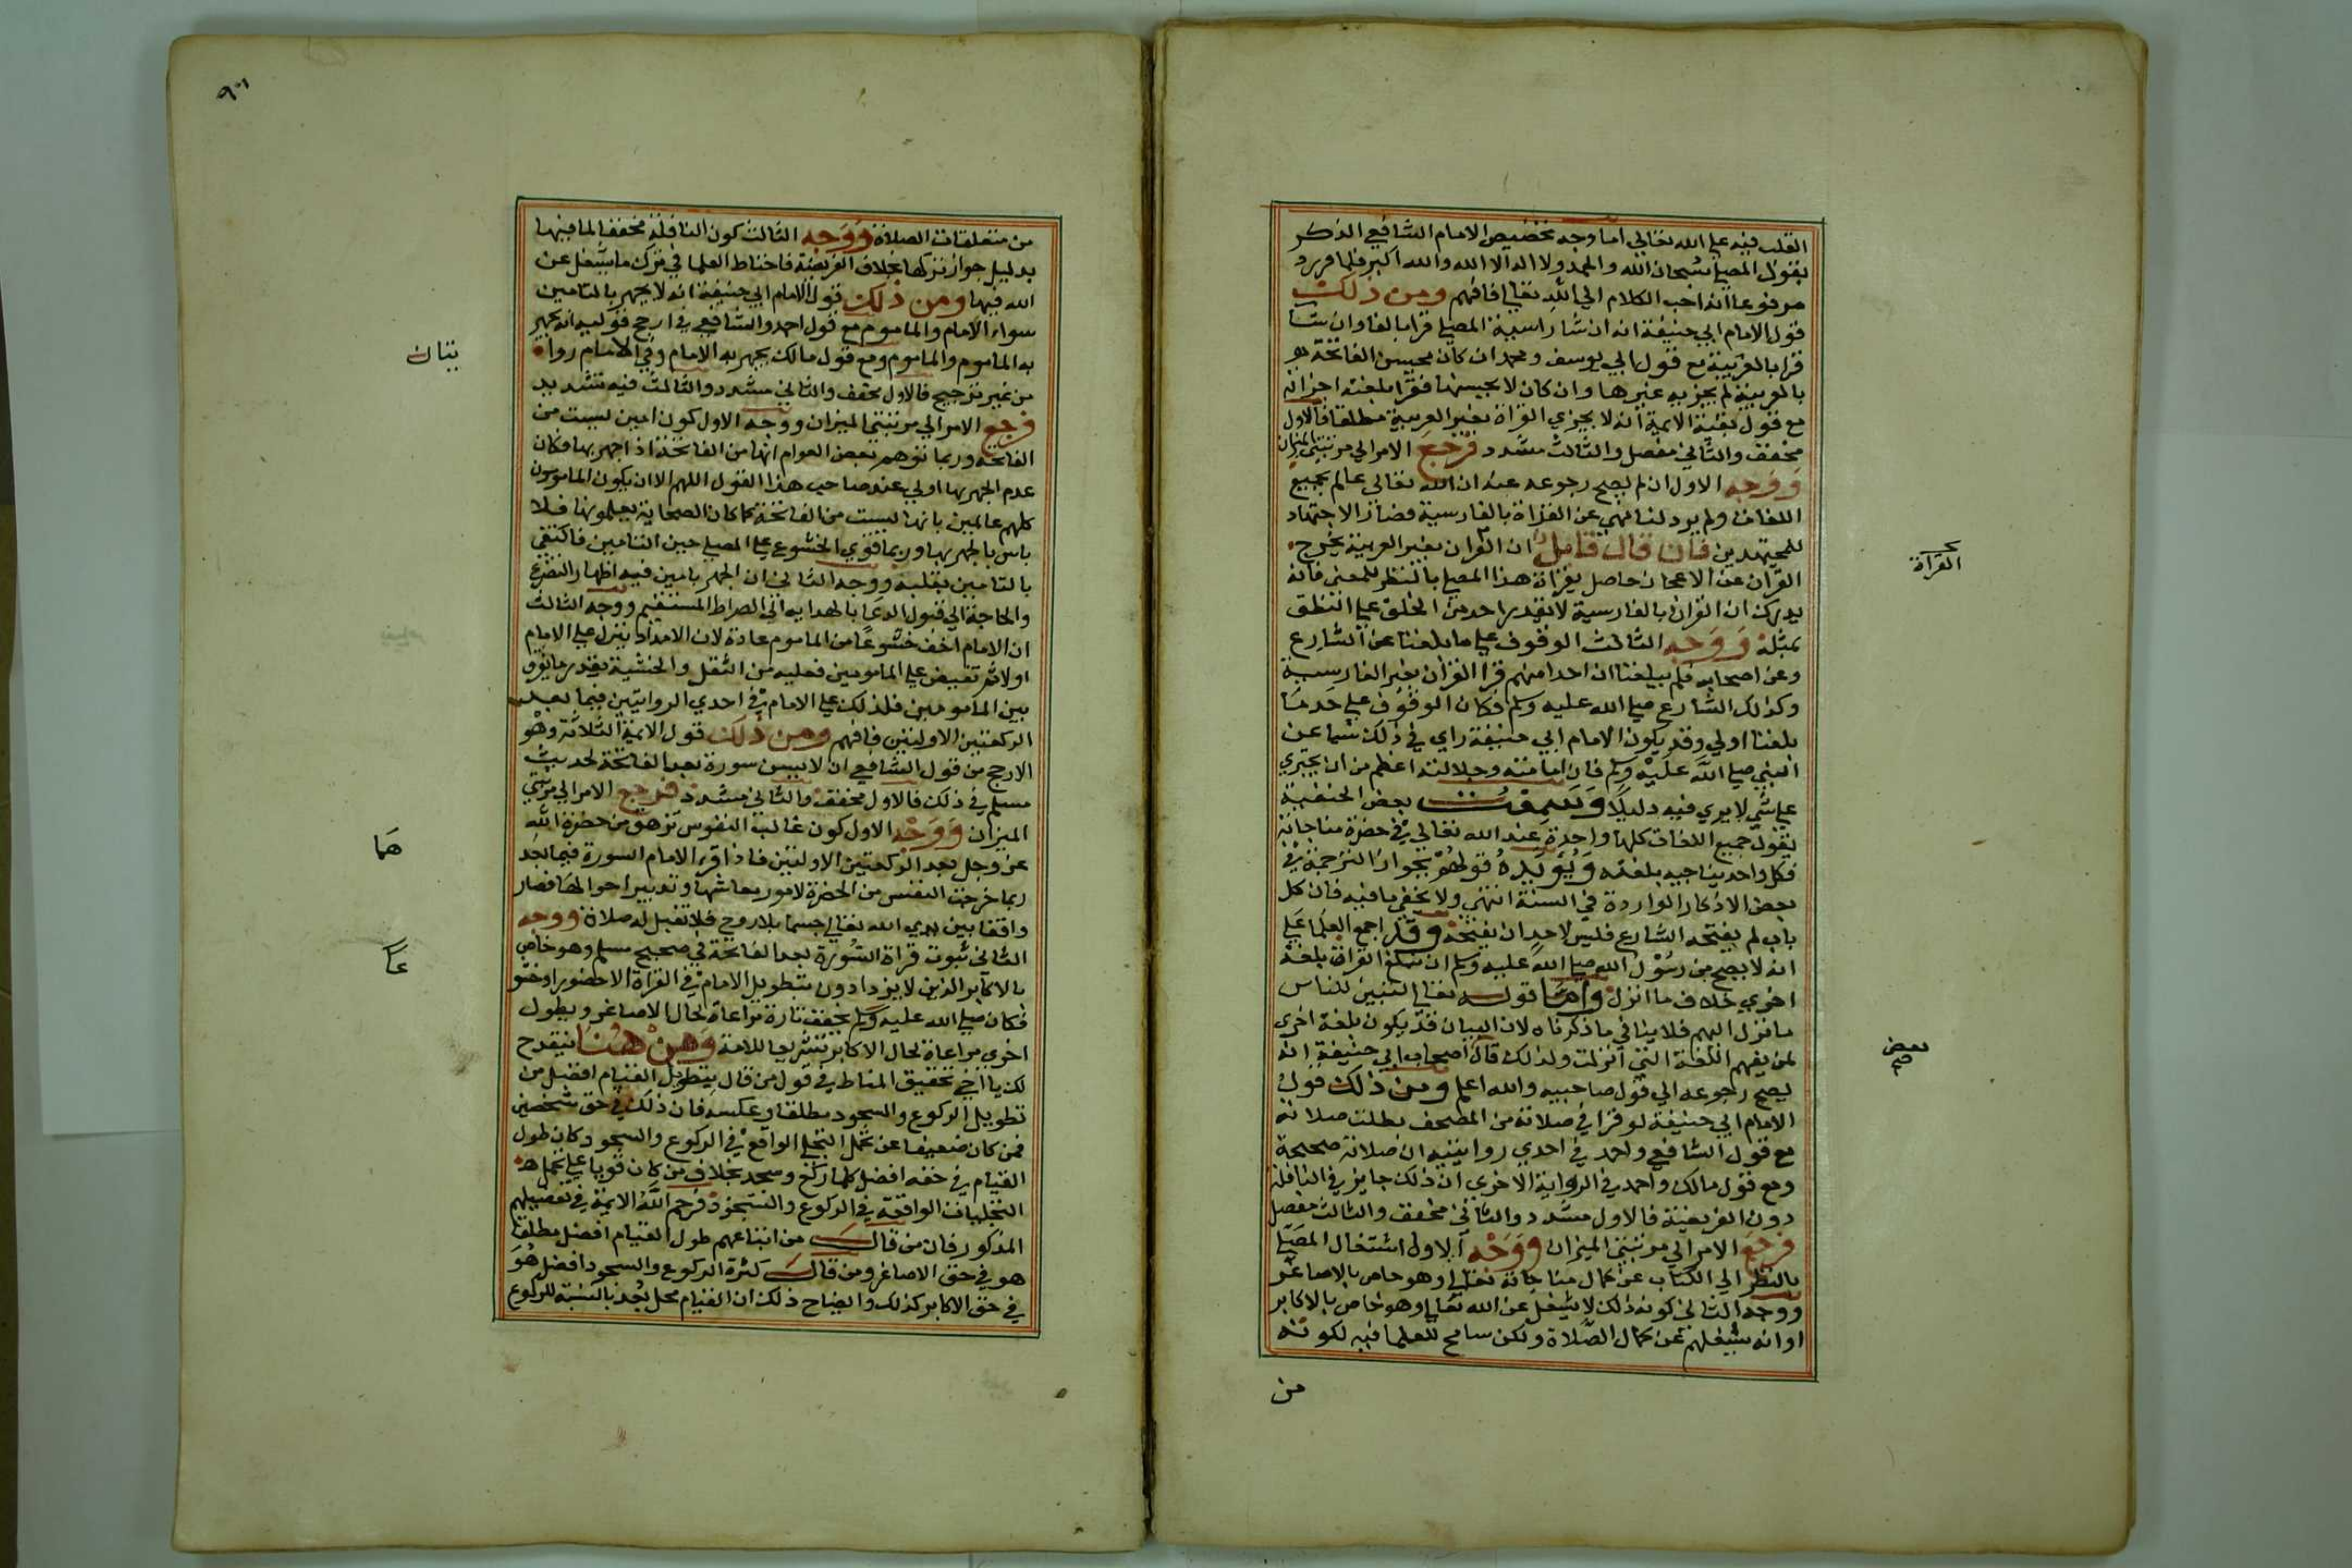 القلب فيه علي الله تعالي اما وجه تخصيص الامام الشافعي الذكر
بقول المصلي سبحان الله والحمد ولا اله الا الله والله اكبر فلما ورد
مرفوعا انه احب الكلام الي الله تعالي فافهم ومن ذلك
قول الامام ابي حنيفة انه ان شا راسية المصلي قرا بالفا وان شا
قرا بالعربية مع قول ابي يوسف ومحمد ان كان يحسن الفاتحة
بالعربية لم يجزيه غيرها وان كان لا يحسنها فقرا بلغته اجزاته
مع قول بقية الايمة انه لا يجزي القراة بغير العربية مطلقا فالاول
مخفف والثاني مفصل والثالث مشدد فرجع الامر الي مرتبتي الميزان
ووجه الاول ان لم يصح رجوعه عنه ان الله تعالى عالم بجميع
اللغات ولم يرد لنا نهي عن القراة بالفارسية فضاز الاجتهاد
للمجتهدين فان قال قايل ان القران بغير العربية يخرج
القران عن الاعجاز حاصل بقراة هذا المصلي بالنظر للمعنى فانه
يدرك ان القران بالفارسية لا يقدر احد من الخلق علي النطق
بمثله ووجه الثالث الوقوف علي ما بلغنا عن الشارع
وعن اصحابه فلم يبلغنا ان احدا منهم قرا القران بغير الفارسية
وكذلك الشارع صلي الله عليه وسلم فكان الوقوف علي حد ما
بلغنا اولي وقد يكون الامام ابي حنيفة راي في ذلك شيا عن
النبي صلي الله عليه وسلم فان امامته وجلالته اعظم من ان يجتري
علي شي لا يري فيه دليلا وسمعت بعض الحنفية
يقول جميع اللغات كلها واحدة عند الله تعالي في حضرة مناجاته
فكل واحد يناجيه بلغته ويؤيده قولهم بجواز الترجمة في
بعض الاذكار الواردة في السنة انتهى ولا يخفي ما فيه فان كل
باب لم يفتحه الشارع فليس لاحد ان يفتحه وقد اجمع العلما علي
انه لا يصح من رسول الله صلي الله عليه وسلم ان يبلغ القران بلغة
اخري خلاف ما انزل واما قوله تعالي لتبين للناس
ما نزل اليهم فلا ينافي ما ذكرناه لان البيان قد يكون بلغة اخري
لمن يفهم اللغة التي انزلت ولذلك قال اصحاب ابي حنيفة انه
يصح رجوعه الي قول صاحبيه والله اعلم ومن ذلك قول
الامام ابي حنيفة لو قرا في صلاته من المصحف بطلت صلاته
مع قول الشافعي واحمد في احدي روايتيه ان صلاته صحيحة
ومع قول مالك واحمد في الرواية الاخري ان ذلك جايز في النافلة
دون الفريضة فالاول مشدد والثاني مخفف والثالث مفصل
فرجع الامر الي مرتبتي الميزان ووجه الاول اشتغال المصلي
بالنظر الي الكتاب عن كمال مناجاته تعالي وهو خاص بالاصاغر
ووجه الثاني كونه ذلك لا يشغل عن الله تعالي وهو خاص بالاكابر
او انه يشغلهم عن كمال الصلاة ولكن سامح العلما فيه لكونه
من
القرآة
بعض
صح
٩٠١
من متعلقات الصلاة ووجه الثالث كون النافلة مخففا لما فيها
بدليل جواز تركها بخلاف الفريضة فاحتاط العلما في ترك ما يشغل عن
الله فيها ومن ذلك قول الامام ابي حنيفة انه لا يجهر بالتامين
سواء الامام والماموم مع قول احمد والشافعي في ارجح قوليه انه يجهر
به الماموم والماموم ومع قول مالك يجهر به الامام وفي الامام روا
من غير ترجيح فالاول مخفف والثاني مشدد والثالث فيه تشديد
فرجع الامر الي مرتبتي الميزان ووجه الاول كون امين ليست من
الفاتحة وربما توهم بعض العوام انها من الفاتحة اذا جهر بها فكان
عدم الجهر بها اولي عند صاحب هذا القول اللهم الا ان يكون المامومون
كلهم عالمين بانها ليست من الفاتحة كما كان الصحابة يعلمونها فلا
باس بالجهر بها وربما قوي الخشوع علي المصلي حين التامين فاكتفى
بالتامين بقلبه ووجه الثاني ان الجهر بامين فيه اظهار التضرع
والحاجة الي قبول الدعا بالهداية الي الصراط المستقيم ووجه الثالث
ان الامام اخف خشوعا من الماموم عادة لان الامداد ينزل علي الامام
اولا ثم تفيض علي المامومين فعليه من الثقل والخشية بقدر ما يفرق
بين المامومين فلذلك علي الامام في احدي الروايتين فيما بعد
الركعتين الاوليين فافهم ومن ذلك قول الايمة الثلاثة وهو
الارجح من قول الشافعي ان لا يسن سورة بعد الفاتحة لحديث
مسلم في ذلك فالاول مخفف والثاني مشدد فرجع الامر الي مرتبتي
الميزان ووجه الاول كون غالب النفوس تزهق من حضرة الله
عز وجل بعد الركعتين الاوليين فاذا قرا الامام السورة فيما بعد
ربما خرجت النفس من الحضرة لامور معاشها وتدبير احوالها فصار
واقفا بين يدي الله تعالي جسما بلا روح فلا تقبل له صلاة ووجه
الثاني ثبوت قراة السورة بعد الفاتحة في صحيح مسلم وهو خاص
بالاكابر الذين لا يزدادون بتطويل الامام في القراة الا حضورا وخشو
فكان صلي الله عليه وسلم يخفف تارة مراعاة لحال الاصاغر ويطول
اخري مراعاة لحال الاكابر تشريعا للامة ومن هنا ينقدح
لك يا اخي تحقيق المناط في قول من قال بتطويل القيام افضل من
تطويل الركوع والسجود مطلقا وعكسه فان ذلك في حق شخصين
فمن كان ضعيفا عن تحمل التجلي الواقع في الركوع والسجود كان طول
القيام في حقه افضل كلما ركع وسجد بخلاف من كان قويا علي تحمل هذه
التجليات الواقعة في الركوع والسجود فرحم الله الايمة في تفصيلهم
المذكور فان من قال من اتباعهم طول القيام افضل مطلقا
هو في حق الاصاغر ومن قال كثرة الركوع والسجود افضل هو
في حق الاكابر كذلك وايضاح ذلك ان القيام محل بعد بالنسبة للركوع
هما